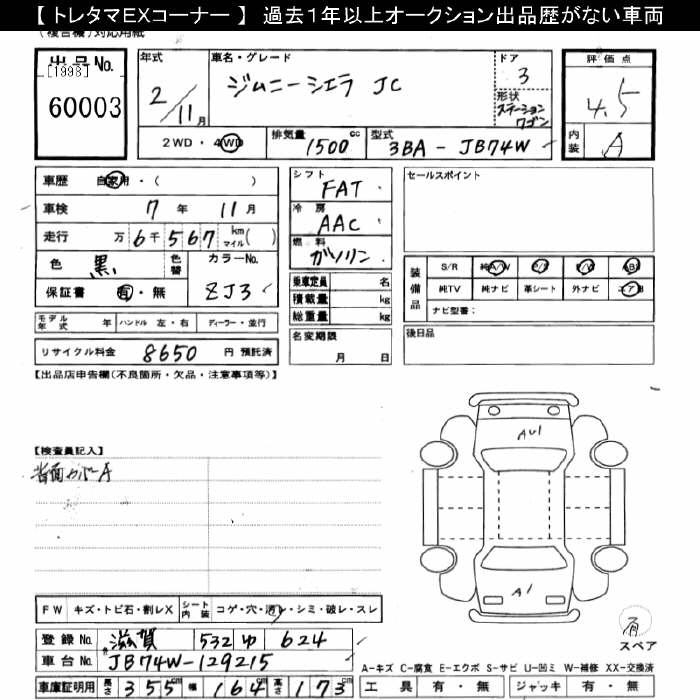 【 トレタマEXコーナー 】 過去1年以上オークション出品歴がない車両
(複合機)対応用紙
出品No.
[1998]
60003
年式
2/11月
車名・グレード
ジムニーシエラ JC
ドア
3
形状
ステーションワゴン
評価点
4.5
内装
A
2WD・4WD
排気量
1500cc
型式
3BA - JB74W
車歴 自家用・( )
車検 7年 11月
走行 万 6千 567 km マイル( )
色 黒 色替
カラーNo.
ZJ3
保証書 有・無
シフト
FAT
冷房
AAC
燃料
ガソリン
乗車定員 名
積載量 kg
総重量 kg
名変期限
月 日
セールスポイント
装備品
S/R 純A/W P/S P/W ABS
純TV 純ナビ 革シート 外ナビ エアB
ナビ型番:
後日品
モデル年式 年 ハンドル 左・右 ディーラー・並行
リサイクル料金 8650 円 預託済
【出品店申告欄(不良箇所・欠品・注意事項等)】
【検査員記入】
背面カバーA
AU1
A1
FW キズ・トビ石・割レX
シート内装 コゲ・穴・汚レ・シミ・破レ・スレ
登録No. 滋賀 532 ゆ 624
車台No. JB74W-129215
車庫証明用 長さ 355cm 幅 164cm 高さ 173cm
有
スペア
A-キズ C-腐食 E-エクボ S-サビ U-凹ミ W-補修 XX-交換済
工具 有・無 ジャッキ 有・無